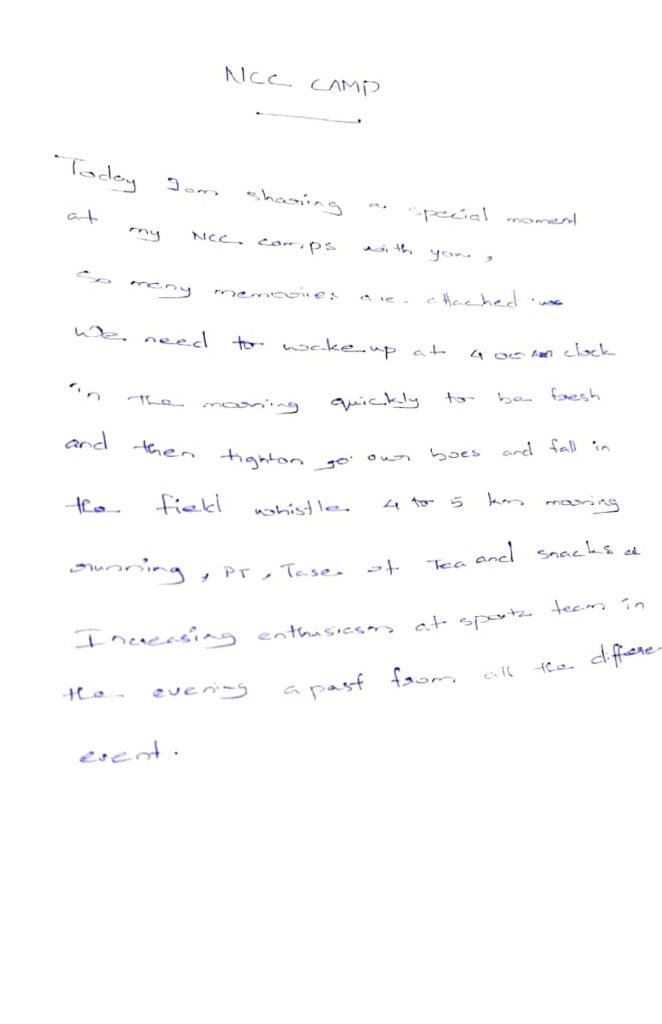 NCC CAMP
Today I am sharing a special moment
at my NCC camps with you,
So many memories are attached
We need to wake up at 4 clock
in the morning quickly to be fresh
and then tighton go own boes and fall in
the field whistle 4 to 5 km moring
running, PT, Tase of Tea and snacks
Increasing enthusicsm at sports team in
the evening apast from all the differe
event.